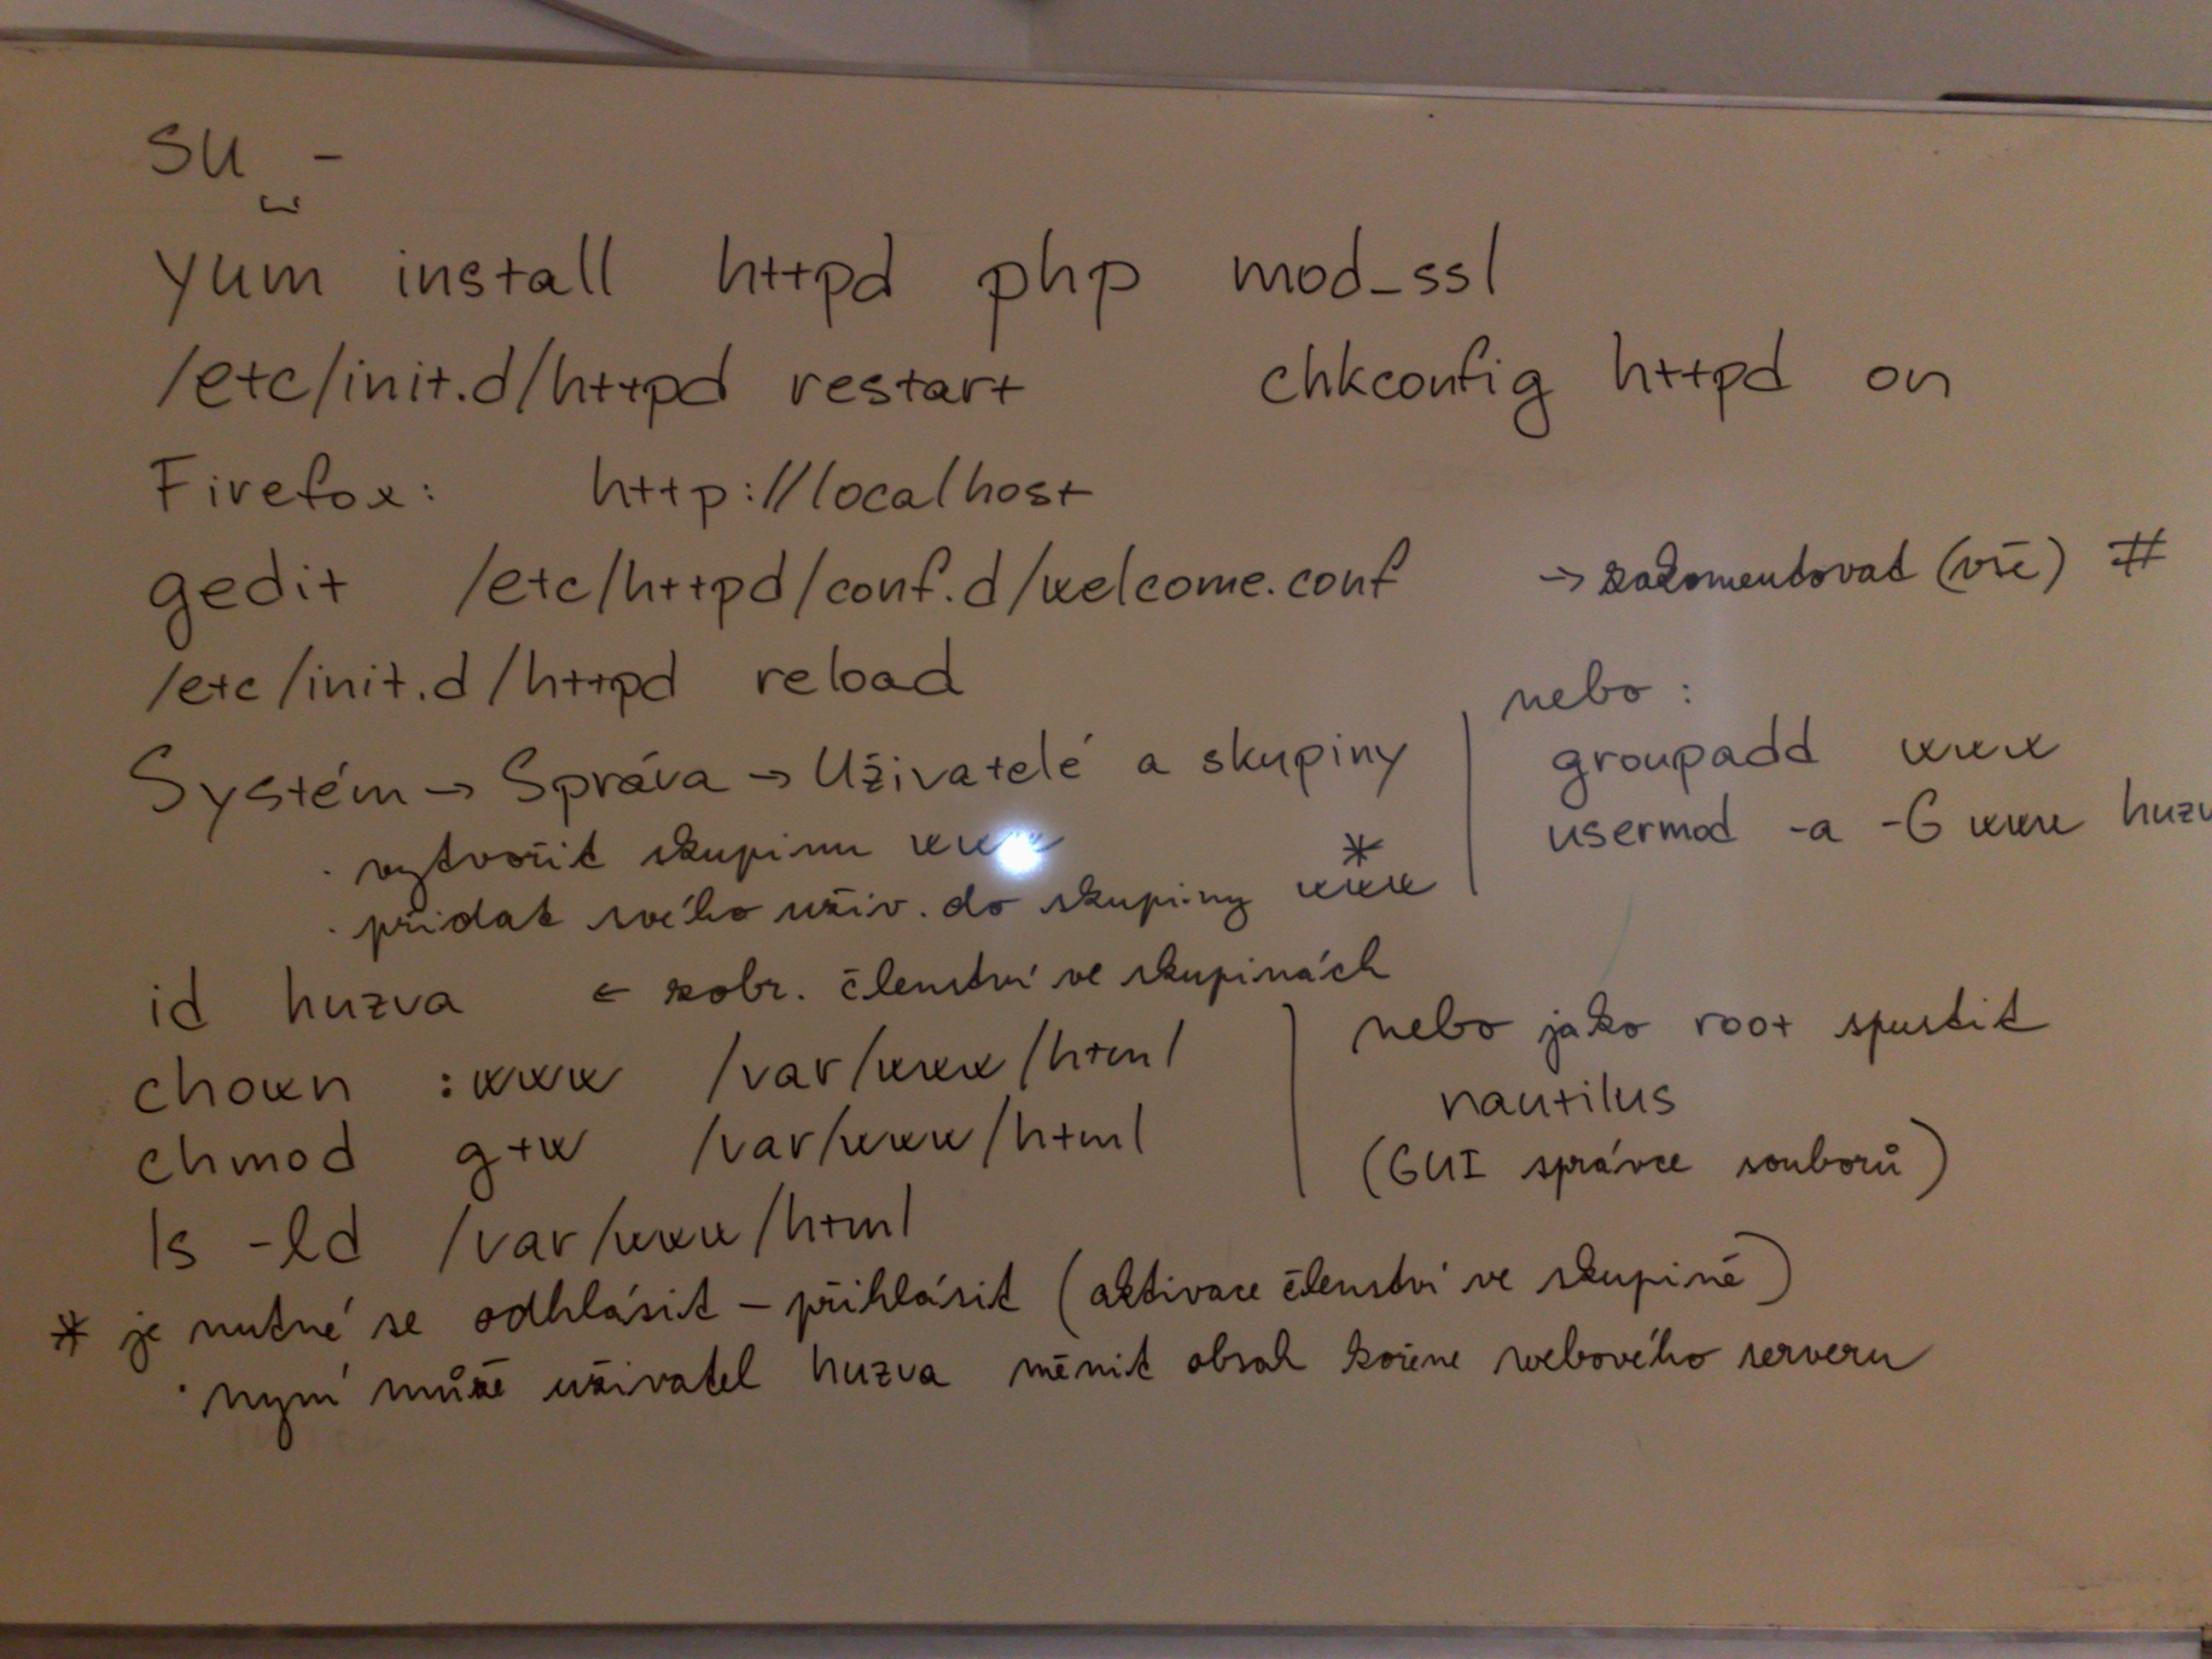 su ␣ -
yum install httpd php mod_ssl
/etc/init.d/httpd restart chkconfig httpd on
Firefox: http://localhost
gedit /etc/httpd/conf.d/welcome.conf → zakomentovat (vše) #
/etc/init.d/httpd reload
Systém → Správa → Uživatelé a skupiny
· vytvořit skupinu www
· přidat svého uživ. do skupiny www *
nebo:
groupadd www
usermod -a -G www huzv
id huzva ← zobr. členství ve skupinách
chown :www /var/www/html
chmod g+w /var/www/html
ls -ld /var/www/html
nebo jako root spustit
nautilus
(GUI správce souborů)
* je nutné se odhlásit - přihlásit (aktivace členství ve skupině)
· nyní může uživatel huzva měnit obsah kořene webového serveru